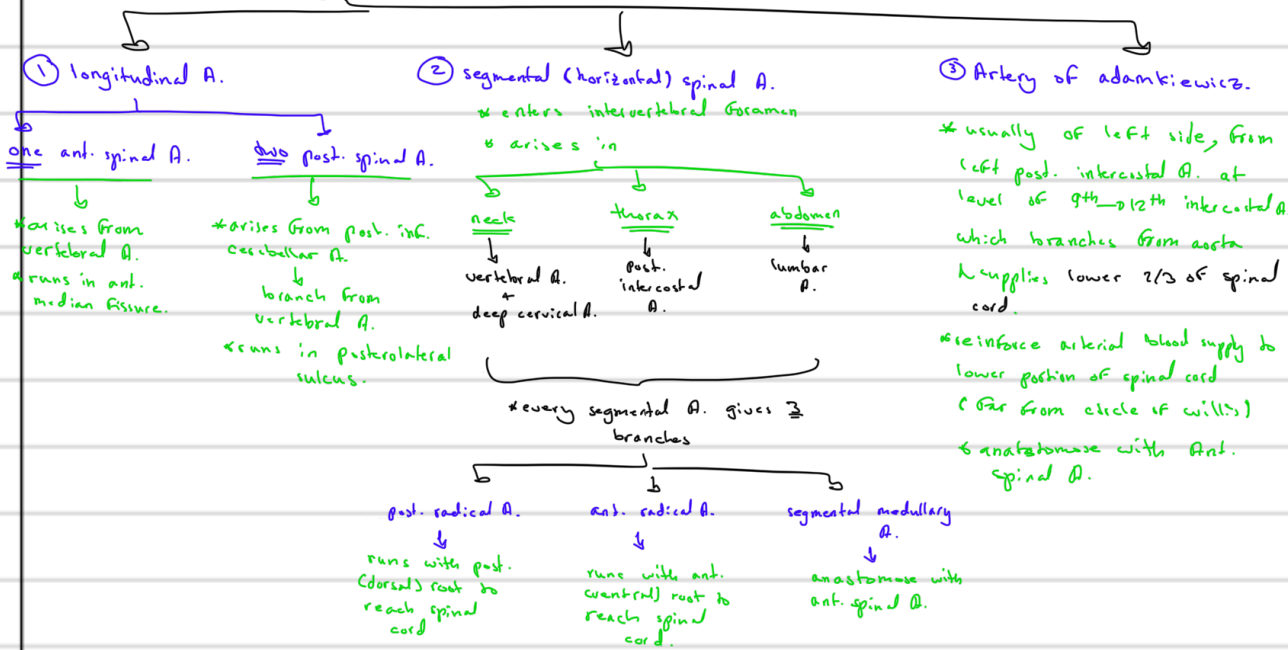 ① longitudinal A.
one ant. spinal A.
two post. spinal A.
*arises from
vertebral A.
*runs in ant.
median fissure.
*arises from post. inf.
cerebellar A.
branch from
vertebral A.
*runs in posterolateral
sulcus.
② segmental (horizontal) spinal A.
* enters intervertebral foramen
* arises in
neck
vertebral A.
+
deep cervical A.
thorax
post.
intercostal
A.
abdomen
lumbar
A.
*every segmental A. gives 3
branches
post. radical A.
runs with post.
(dorsal) root to
reach spinal
cord
ant. radical A.
runs with ant.
(ventral) root to
reach spinal
cord.
segmental medullary
A.
anastomose with
ant. spinal A.
③ Artery of adamkiewicz.
* usually of left side, from
left post. intercostal A. at
level of 9th → 12th intercostal A
which branches from aorta
↳ supplies lower 2/3 of spinal
cord.
*reinforce arterial blood supply to
lower portion of spinal cord
(far from circle of willis)
* anatstomose with Ant.
spinal A.